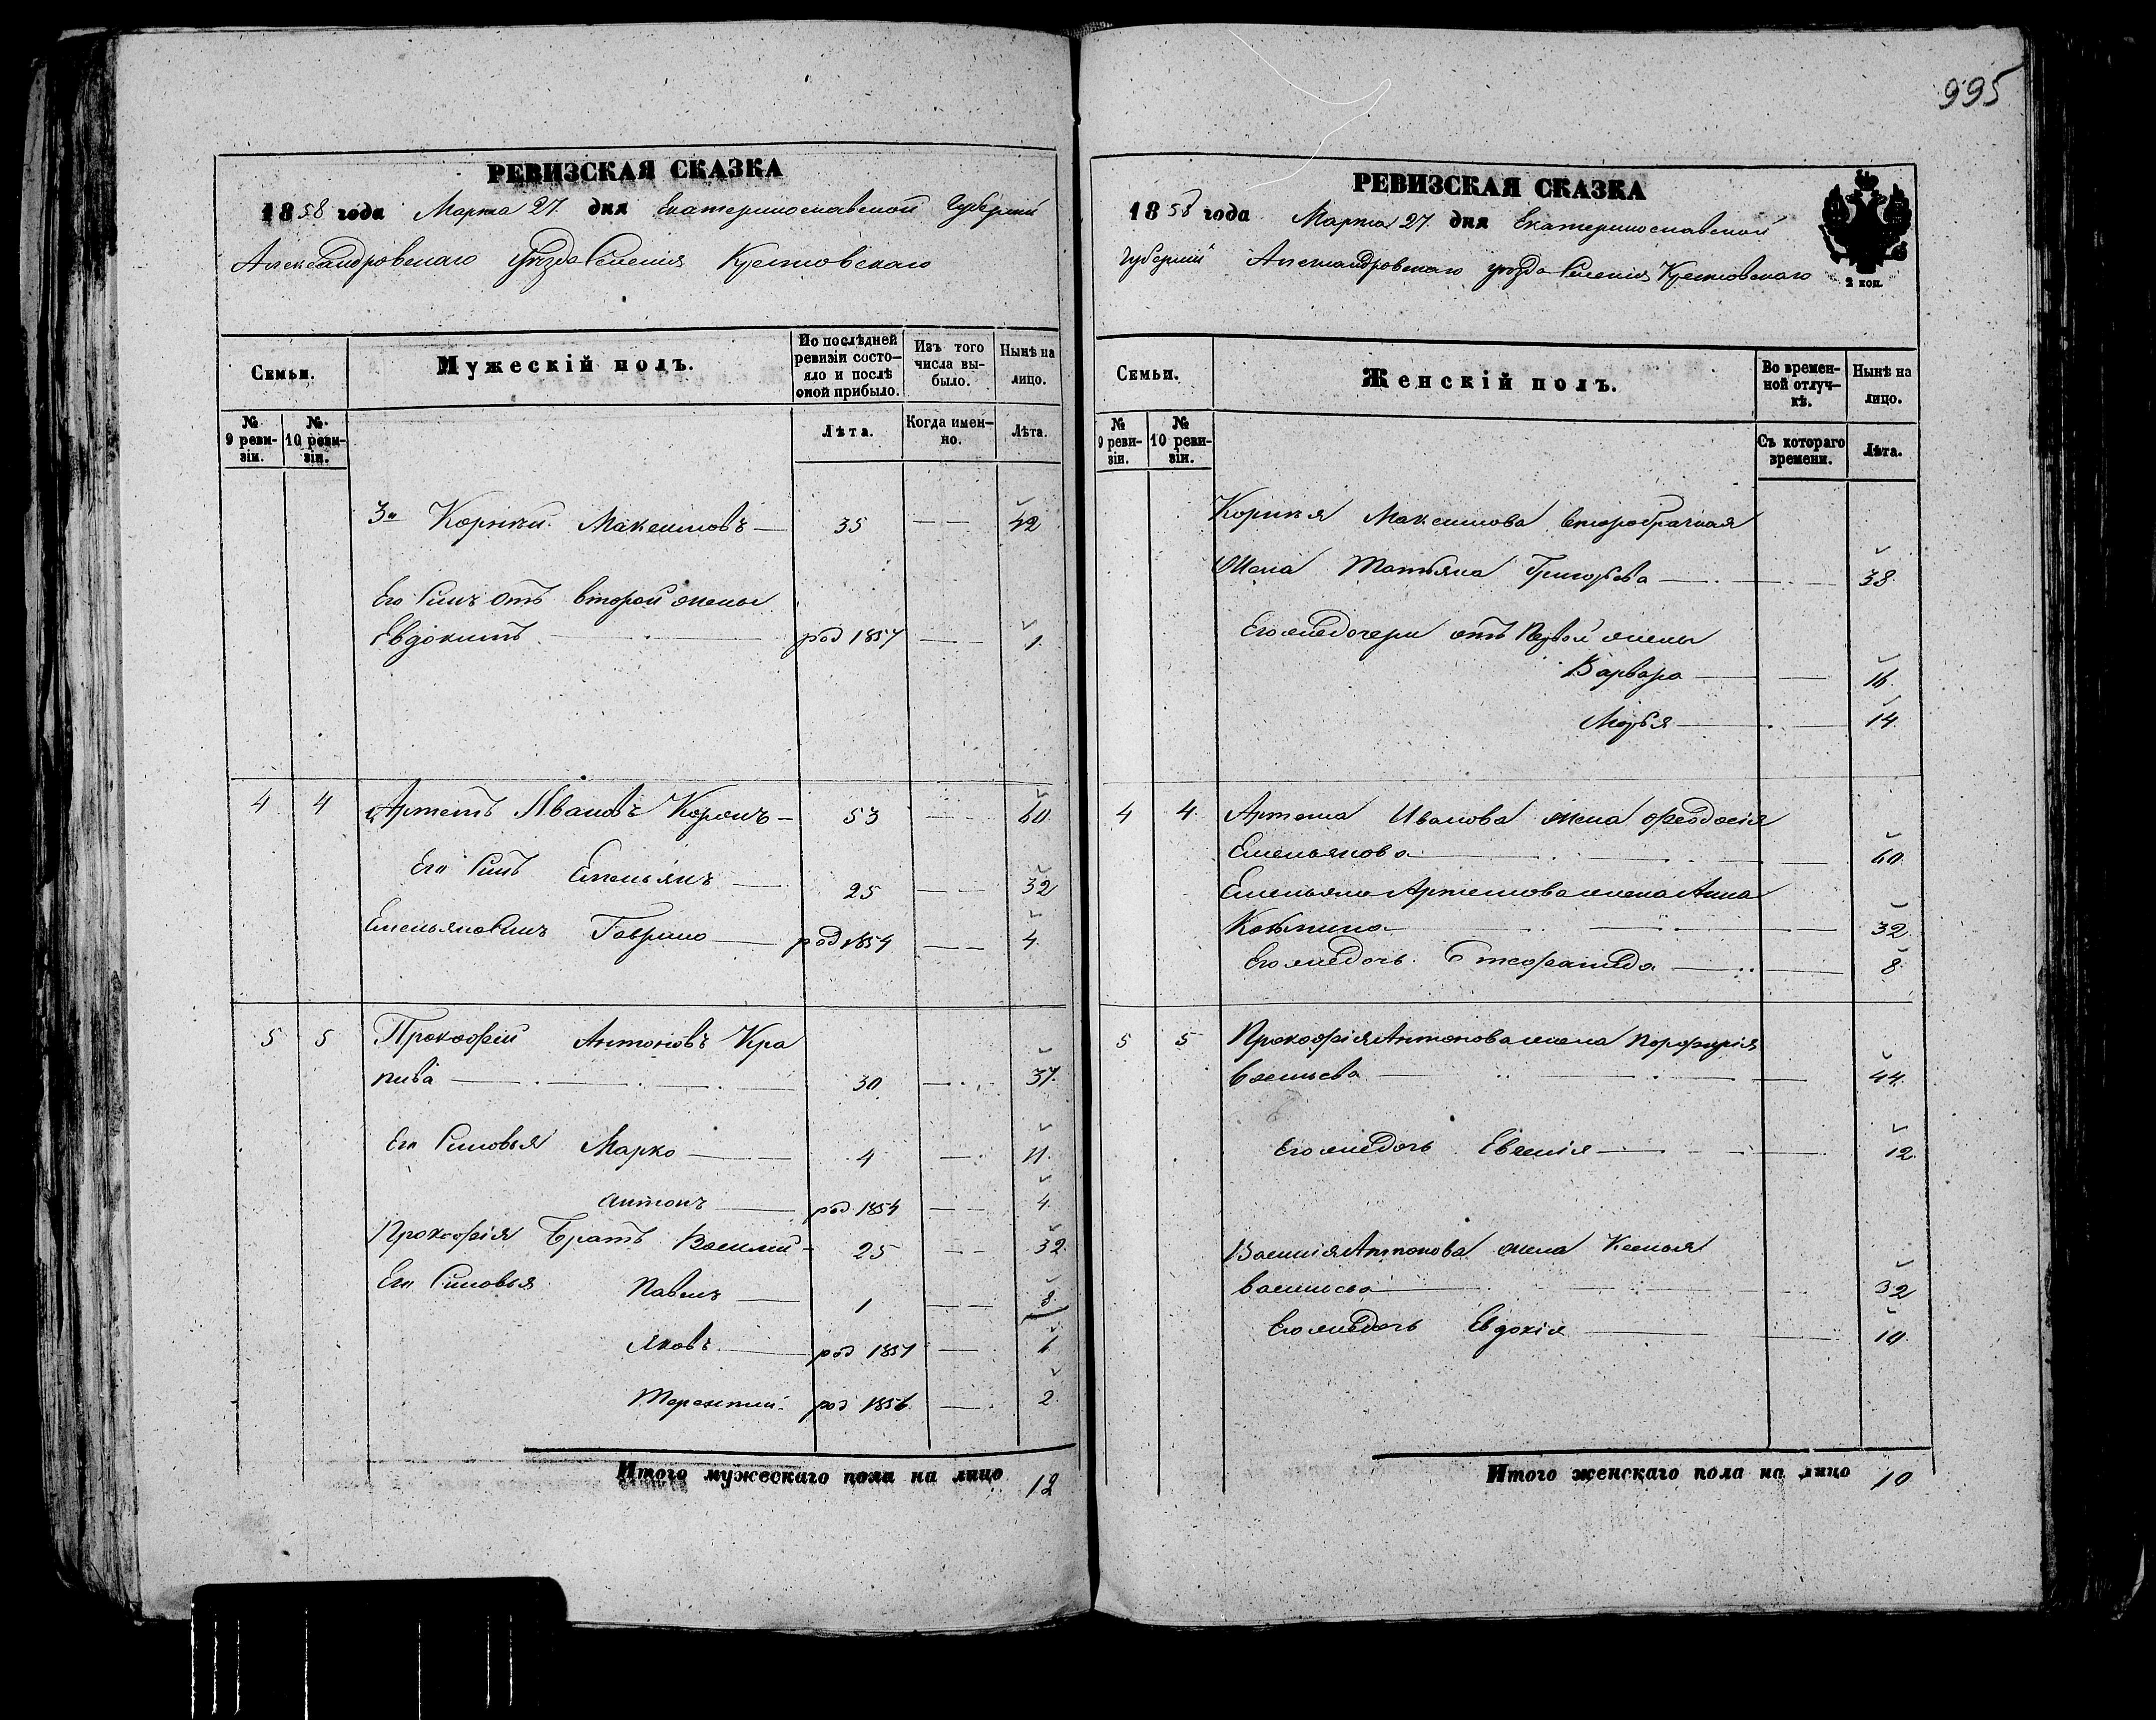 РЕВИЗСКАЯ СКАЗКА
1858 года Марта 27. дня Екатеринославской Губернии
Александровскаго уѣзда Селения
Семьи.
Мужескій полъ.
По послѣдней ревизіи состо-яло и послѣ оной прибыло.
Изъ того числа вы-было.
Нынѣ на лицо.
№ 9 реви-зіи.
№ 10 реви-зіи.
Лѣта.
Когда имен-но.
Лѣта.
3й Корнѣй Максимовъ — 35 — — 42
Его Сынъ отъ второй жены
Евдокимъ — род 1857 — — 1.
4 4 Артемъ Ивановъ — 53 — — 60.
Его Сынъ Емельянъ — 25 — — 32
Емельяна Сынъ Гаврило — род 1854 — — 4.
5 5 Прокофій Антоновъ Кра
пива — 30 — 37.
Его Сыновья Марко — 4 — 11.
Антонъ — род. 1854 — — 4.
Прокофія Братъ Василий — 25 — — 32.
Его Сыновья Павелъ — 1 — — 8.
Яковъ — род 1851 — 6
Терентий. род 1856. — 2.
Итого мужескаго пола на лицо 12
995
РЕВИЗСКАЯ СКАЗКА
1858 года Марта 27. дня Екатеринославской
Губернии Александровскаго уѣзда Селения
2 коп.
Семьи.
Женскій полъ.
Во времен-ной отлуч-кѣ.
Нынѣ на лицо.
№ 9 реви-зіи.
№ 10 реви-зіи.
Съ котораго времени.
Лѣта.
Корнѣя Максимова второбрачная
жена Татьяна Григорьева — 38.
Его же дочери отъ первой жены
Варвара — 16
Марья — 14.
4 4. Артема Иванова жена Феодосія
Емельянова — 60.
Емельяна Артемова жена Анна
Козьмина — 32
Его же дочь. Стефанида — 8.
5 5 Прокофія Антонова жена Порфирія
Васильева — 44.
Его же дочь Евгенія — 12.
Василія Антонова жена
Васильева — 32
Его же дочь Евдокія — 10.
Итого женскаго пола на лицо 10